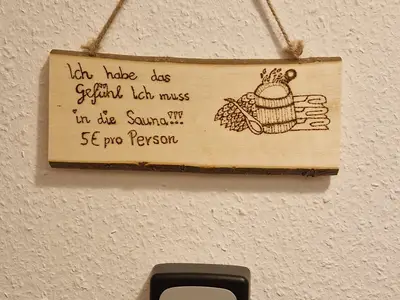 Ich habe das
Gefühl Ich muss
in die Sauna!!!
5€ pro Person